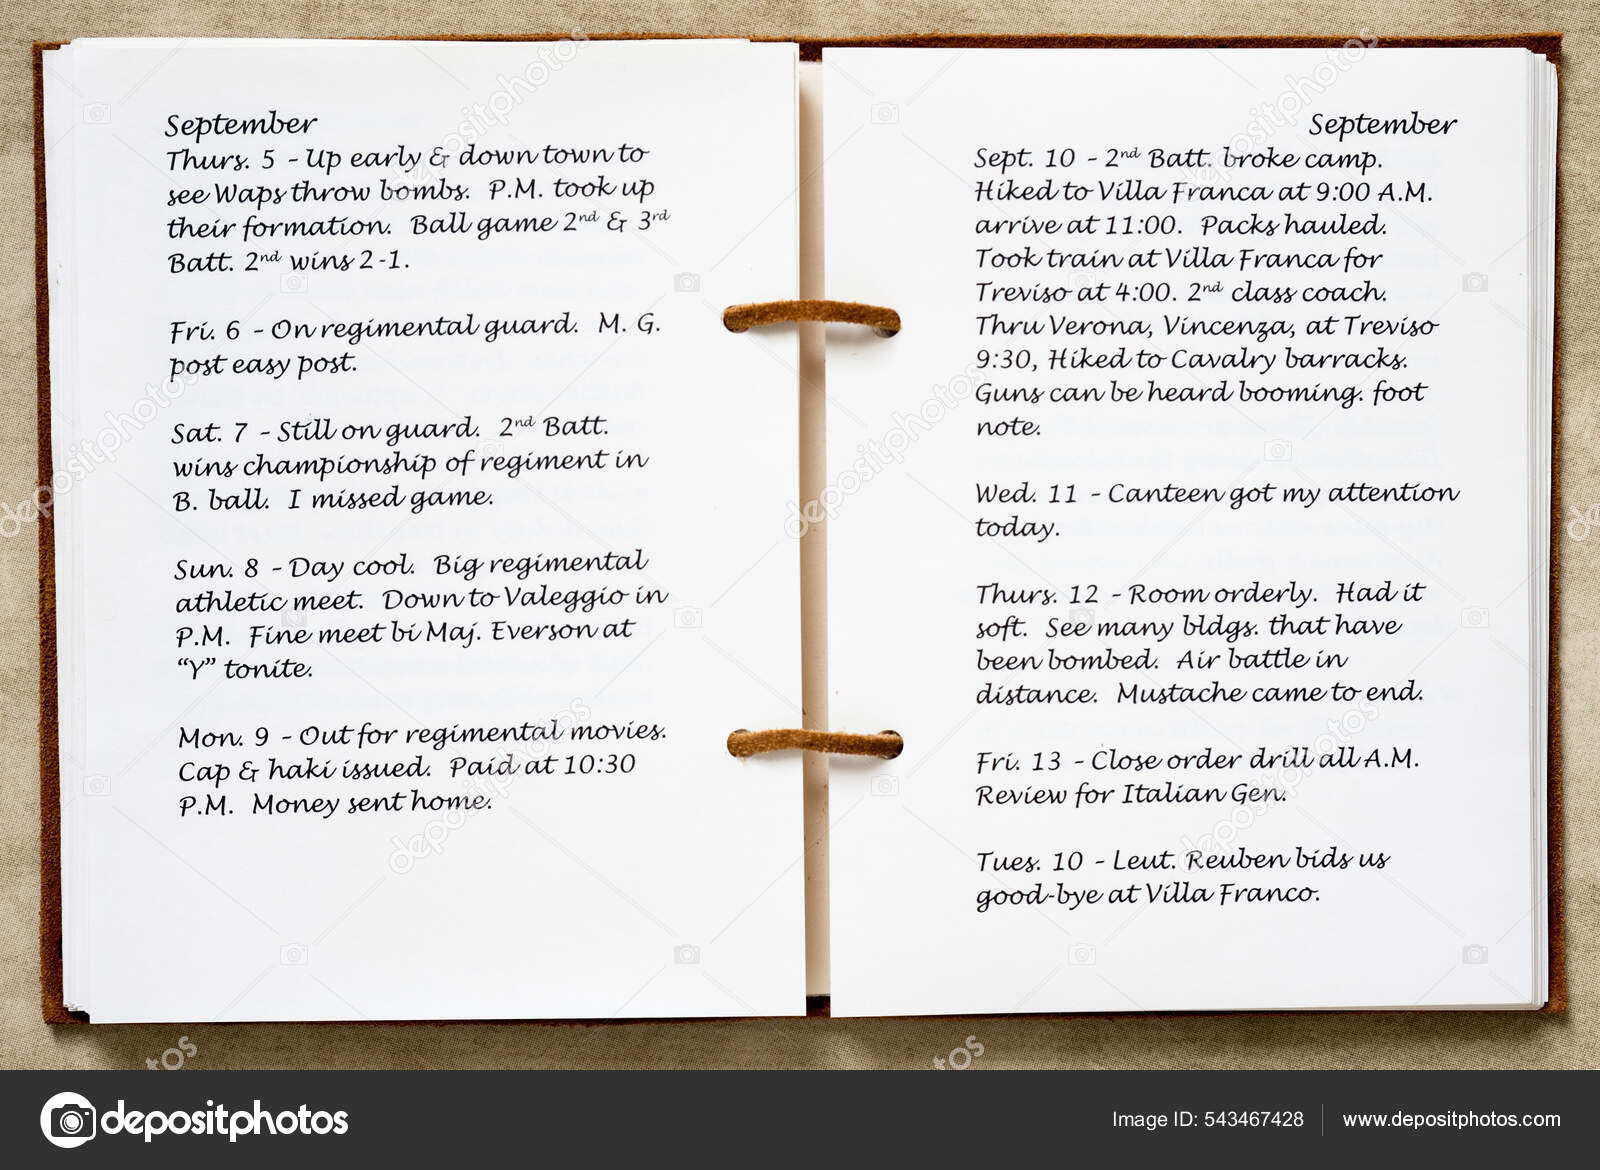 September
Thurs. 5 - Up early & down town to
see Waps throw bombs. P.M. took up
their formation. Ball game 2nd & 3rd
Batt. 2nd wins 2-1.
Fri. 6 - On regimental guard. M. G.
post easy post.
Sat. 7 - Still on guard. 2nd Batt.
wins championship of regiment in
B. ball. I missed game.
Sun. 8 - Day cool. Big regimental
athletic meet. Down to Valeggio in
P.M. Fine meet bi Maj. Everson at
“Y” tonite.
Mon. 9 - Out for regimental movies.
Cap & haki issued. Paid at 10:30
P.M. Money sent home.
September
Sept. 10 - 2nd Batt. broke camp.
Hiked to Villa Franca at 9:00 A.M.
arrive at 11:00. Packs hauled.
Took train at Villa Franca for
Treviso at 4:00. 2nd class coach.
Thru Verona, Vincenza, at Treviso
9:30, Hiked to Cavalry barracks.
Guns can be heard booming. foot
note.
Wed. 11 - Canteen got my attention
today.
Thurs. 12 - Room orderly. Had it
soft. See many bldgs. that have
been bombed. Air battle in
distance. Mustache came to end.
Fri. 13 - Close order drill all A.M.
Review for Italian Gen.
Tues. 10 - Leut. Reuben bids us
good-bye at Villa Franco.
depositphotos
Image ID: 543467428
www.depositphotos.com